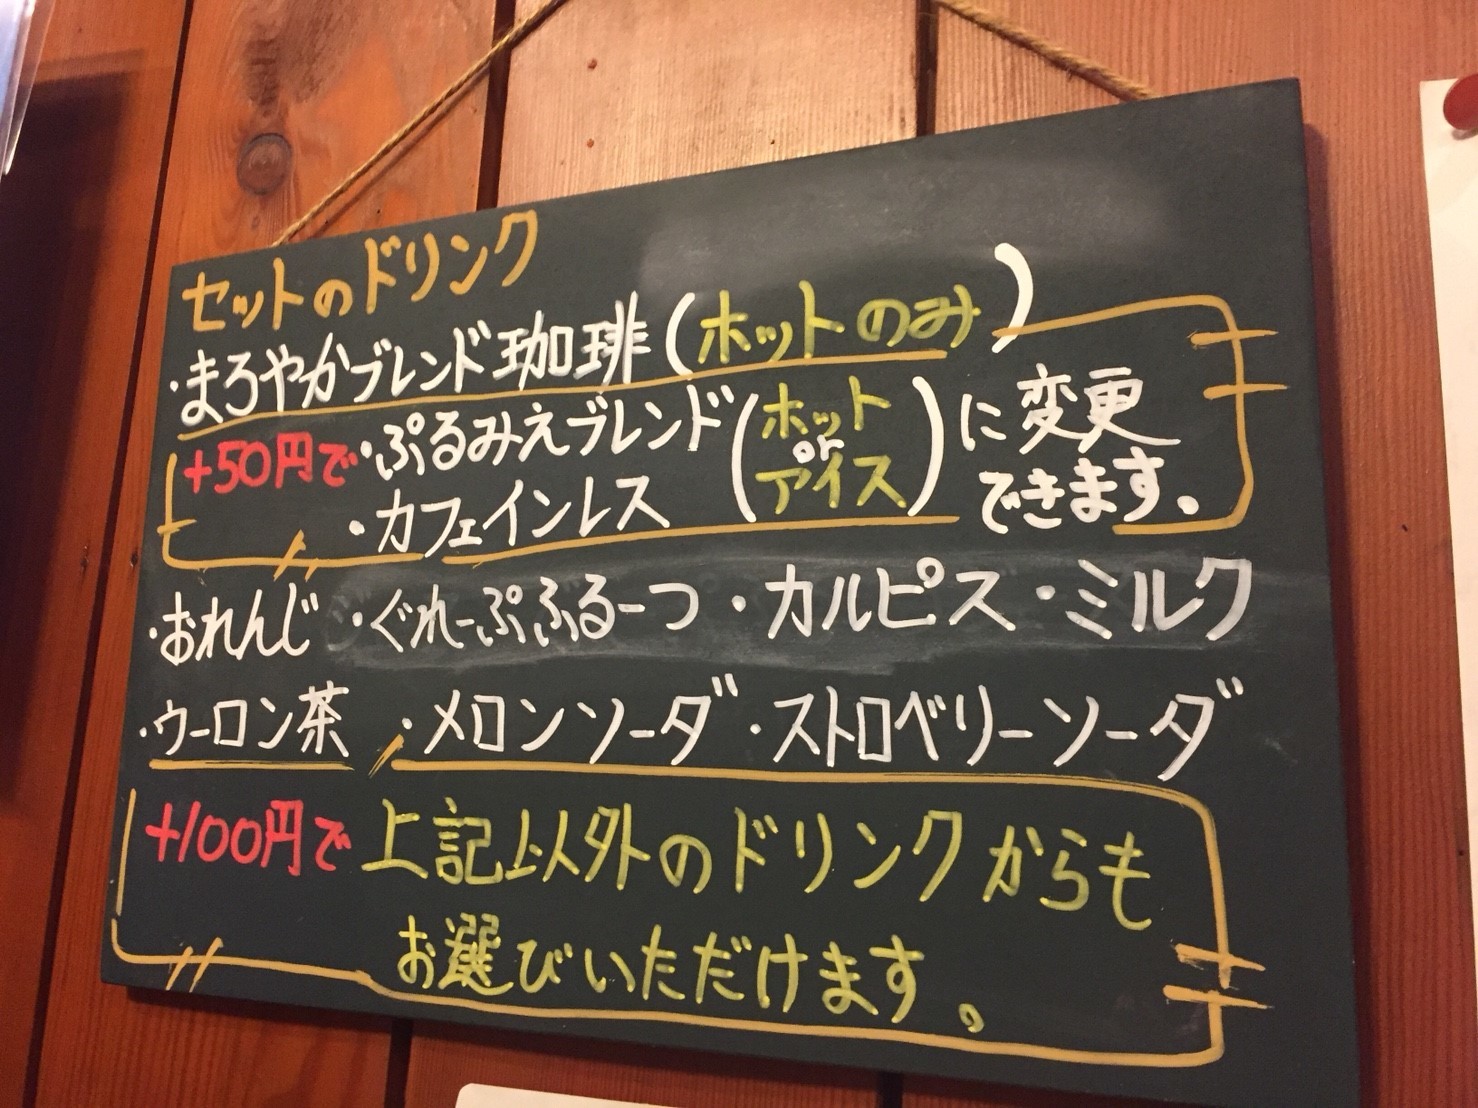 セットのドリンク
・まろやかブレンド珈琲(ホットのみ)
+50円で・ぷるみえブレンド
・カフェインレス
(ホット
or
アイス)
に変更
できます。
・おれんじ ・ぐれーぷふるーつ ・カルピス ・ミルク
・ウーロン茶 ・メロンソーダ ・ストロベリーソーダ
+100円で 上記以外のドリンクからも
お選びいただけます。